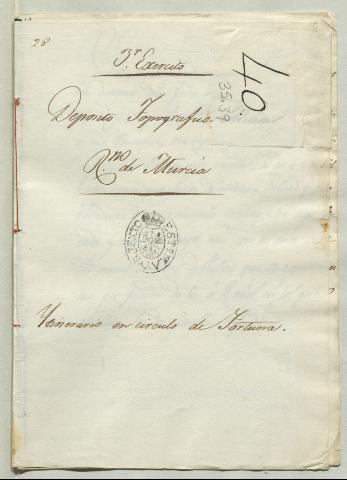 28
3.r Exercito
40
35.39
Deposito Topografico.
R.no de Murcia
Ytinerario en circulo de Fortuna.